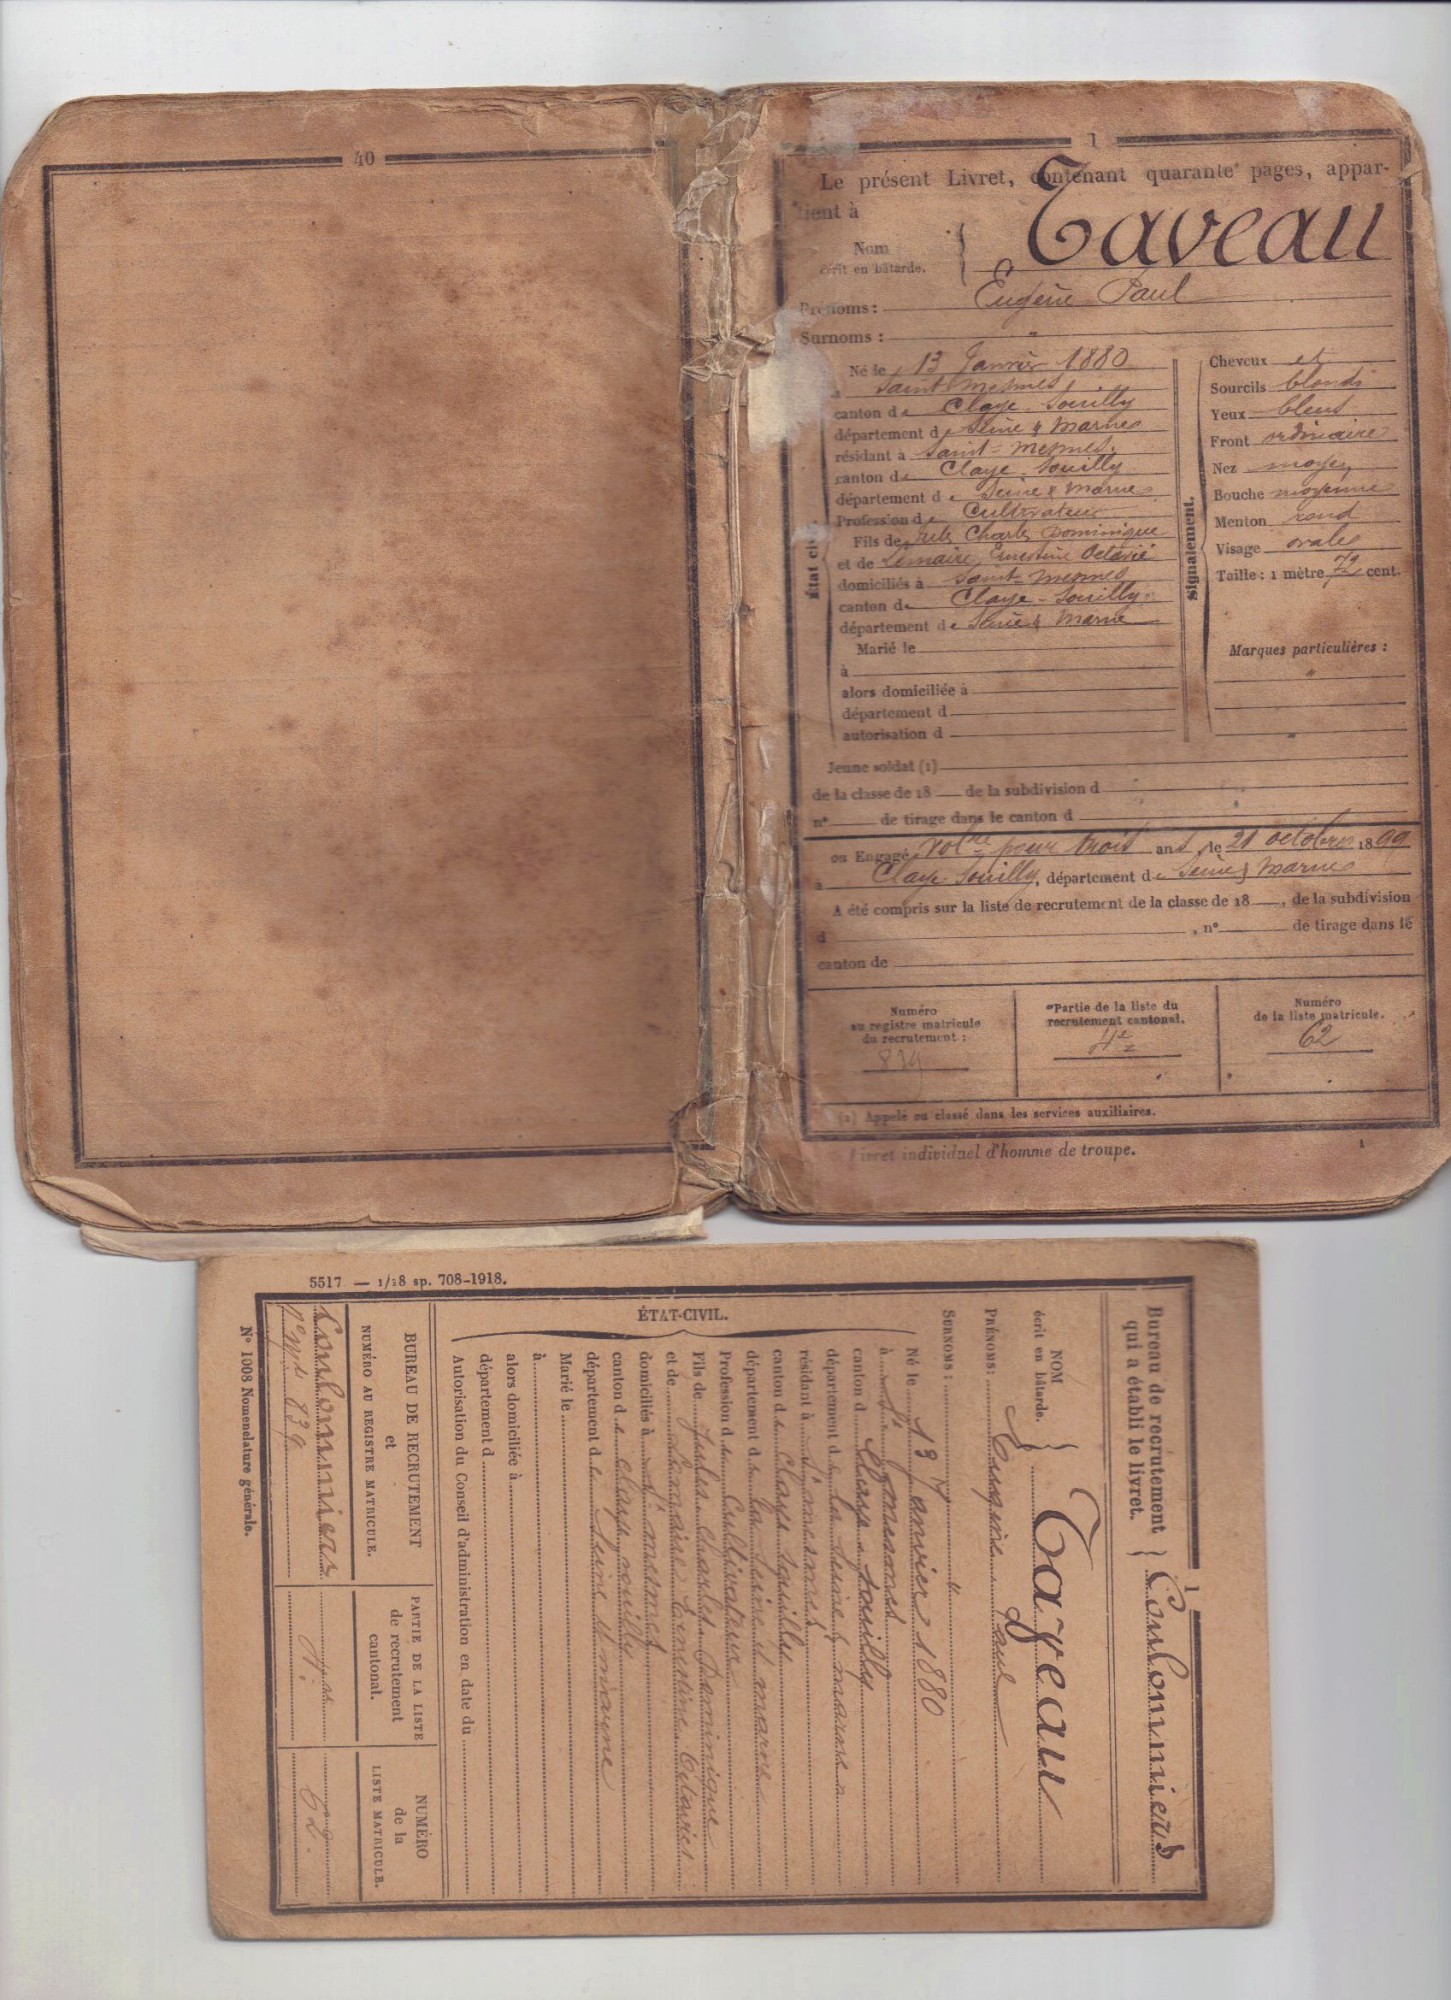 40
1
Le présent Livret, contenant quarante pages, appar-
tient à
Nom
écrit en bâtarde.
Taveau
Prénoms : Eugène Paul
Surnoms : "
Né le 13 Janvier 1880
à Saint Mesmes
canton de Claye-Souilly
département de Seine & Marne
résidant à Saint-Mesmes
canton de Claye-Souilly
département de Seine & Marne
Profession de Cultivateur
Fils de Jules Charles Dominique
et de Lemaire, Ernestine Octavie
domiciliés à Saint-Mesmes
canton de Claye-Souilly
département de Seine & Marne
Marié le
à
alors domiciliée à
département d
autorisation d
État civil
Signalement.
Cheveux et
Sourcils blonds
Yeux bleus
Front ordinaire
Nez moyen
Bouche moyenne
Menton rond
Visage ovale
Taille : 1 mètre 72 cent.
Marques particulières :
"
"
Jeune soldat (1)
de la classe de 18 de la subdivision d
n° de tirage dans le canton d
ou Engagé volre pour trois ans, le 21 octobre 1899
à Claye-Souilly, département de Seine & Marne
A été compris sur la liste de recrutement de la classe de 18 , de la subdivision
d , n° de tirage dans le
canton de
Numéro
au registre matricule
du recrutement :
839
Partie de la liste du
recrutement cantonal.
Numéro
de la liste matricule.
62
(1) Appelé ou classé dans les services auxiliaires.
Livret individuel d'homme de troupe.
1
5517 — 1/28 sp. 708-1918.
1
Bureau de recrutement
qui a établi le livret.
Coulommiers
NOM
écrit en bâtarde.
Taveau
PRÉNOMS : Eugène Paul
SURNOMS : "
ÉTAT-CIVIL.
Né le 13 Janvier 1880
à St mesmes
canton d Claye Souilly
département de la Seine & marne
résidant à St mesmes
canton de Claye Souilly
département de la Seine et marne
Profession de Cultivateur
Fils de Jules Charles Dominique
et de Lemaire Ernestine Octavie
domiciliés à St mesmes
canton de Claye souilly
département de Seine et marne
Marié le
à
alors domiciliée à
département d
Autorisation du Conseil d'administration en date du
BUREAU DE RECRUTEMENT
et
NUMÉRO AU REGISTRE MATRICULE.
Coulommiers
839
PARTIE DE LA LISTE
de recrutement
cantonal.
NUMÉRO
de la
LISTE MATRICULE.
62.
N° 1008 Nomenclature générale.